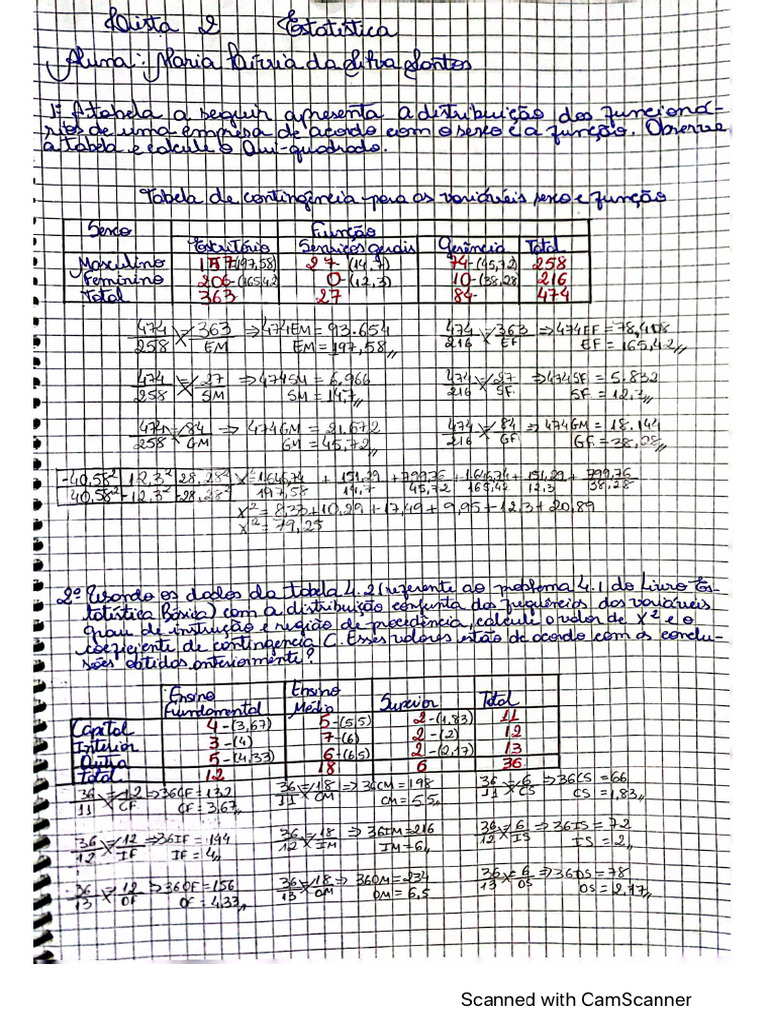 Lista 2 Estatística
Aluna: Maria Lívia da Silva Santos
1º A tabela a seguir apresenta a distribuição dos funcioná-
rios de uma empresa de acordo com o sexo e a função. Observe
a tabela e calcule o Qui-quadrado.
Tabela de contingência para as variáveis sexo e função
Sexo Função
Escritório Serviços gerais Gerência Total
Masculino 157(197,58) 27-(14,7) 74-(45,72) 258
Feminino 206-(165,42 0-(12,3) 10-(38,28 216
Total 363 27 84- 474
474/258 = 363/EM ⇒ 474EM = 93.654 474/216 = 363/EF ⇒ 474EF = 78,408
EM = 197,58 EF = 165,42
474/258 = 27/SM ⇒ 474SM = 6.966 474/216 = 27/SF ⇒ 474SF = 5.832
SM = 14,7 SF = 12,3
474/258 = 84/GM ⇒ 474GM = 21.672 474/216 = 84/GF ⇒ 474GM = 18.144
GM = 45,72 GF = 38,28
-40,58² 12,3² 28,28² X = 1.646,74/197,58 + 151,29/14,7 + 799,76/45,72 + 1.646,74/165,42 + 151,29/12,3 + 799,76/38.28
40,58² -12,3² -28,28²
X² = 8,33 + 10,29 + 17,49 + 9,95 + 12,3 + 20,89
X² = 79,25
2º Usando os dados da tabela 4.2 (referente ao problema 4.1 do Livro Es-
tatística Básica) com a distribuição conjunta das frequências das variáveis
grau de instrução e região de procedência, calcule o valor de X² e o
coeficiente de contingência C. Esses valores estão de acordo com as conclu-
sões obtidas anteriormente?
Ensino Fundamental Ensino Médio Superior Total
Capital 4-(3,67) 5-(5,5) 2-(1,83) 11
Interior 3-(4) 7-(6) 2-(2) 12
Outra 5-(4,33) 6-(6,5) 2-(2,17) 13
Total 12 18 6 36
36/11 = 12/CF ⇒ 36CF = 132 36/11 = 18/CM ⇒ 36CM = 198 36/11 = 6/CS ⇒ 36CS = 66
CF = 3,67 CM = 5,5 CS = 1,83
36/12 = 12/IF ⇒ 36IF = 144 36/12 = 18/IM ⇒ 36IM = 216 36/12 = 6/IS ⇒ 36IS = 72
IF = 4 IM = 6 IS = 2
36/13 = 12/OF ⇒ 36OF = 156 36/13 = 18/OM ⇒ 36OM = 234 36/13 = 6/OS ⇒ 36OS = 78
OF = 4,33 OM = 6,5 OS = 2,17
Scanned with CamScanner